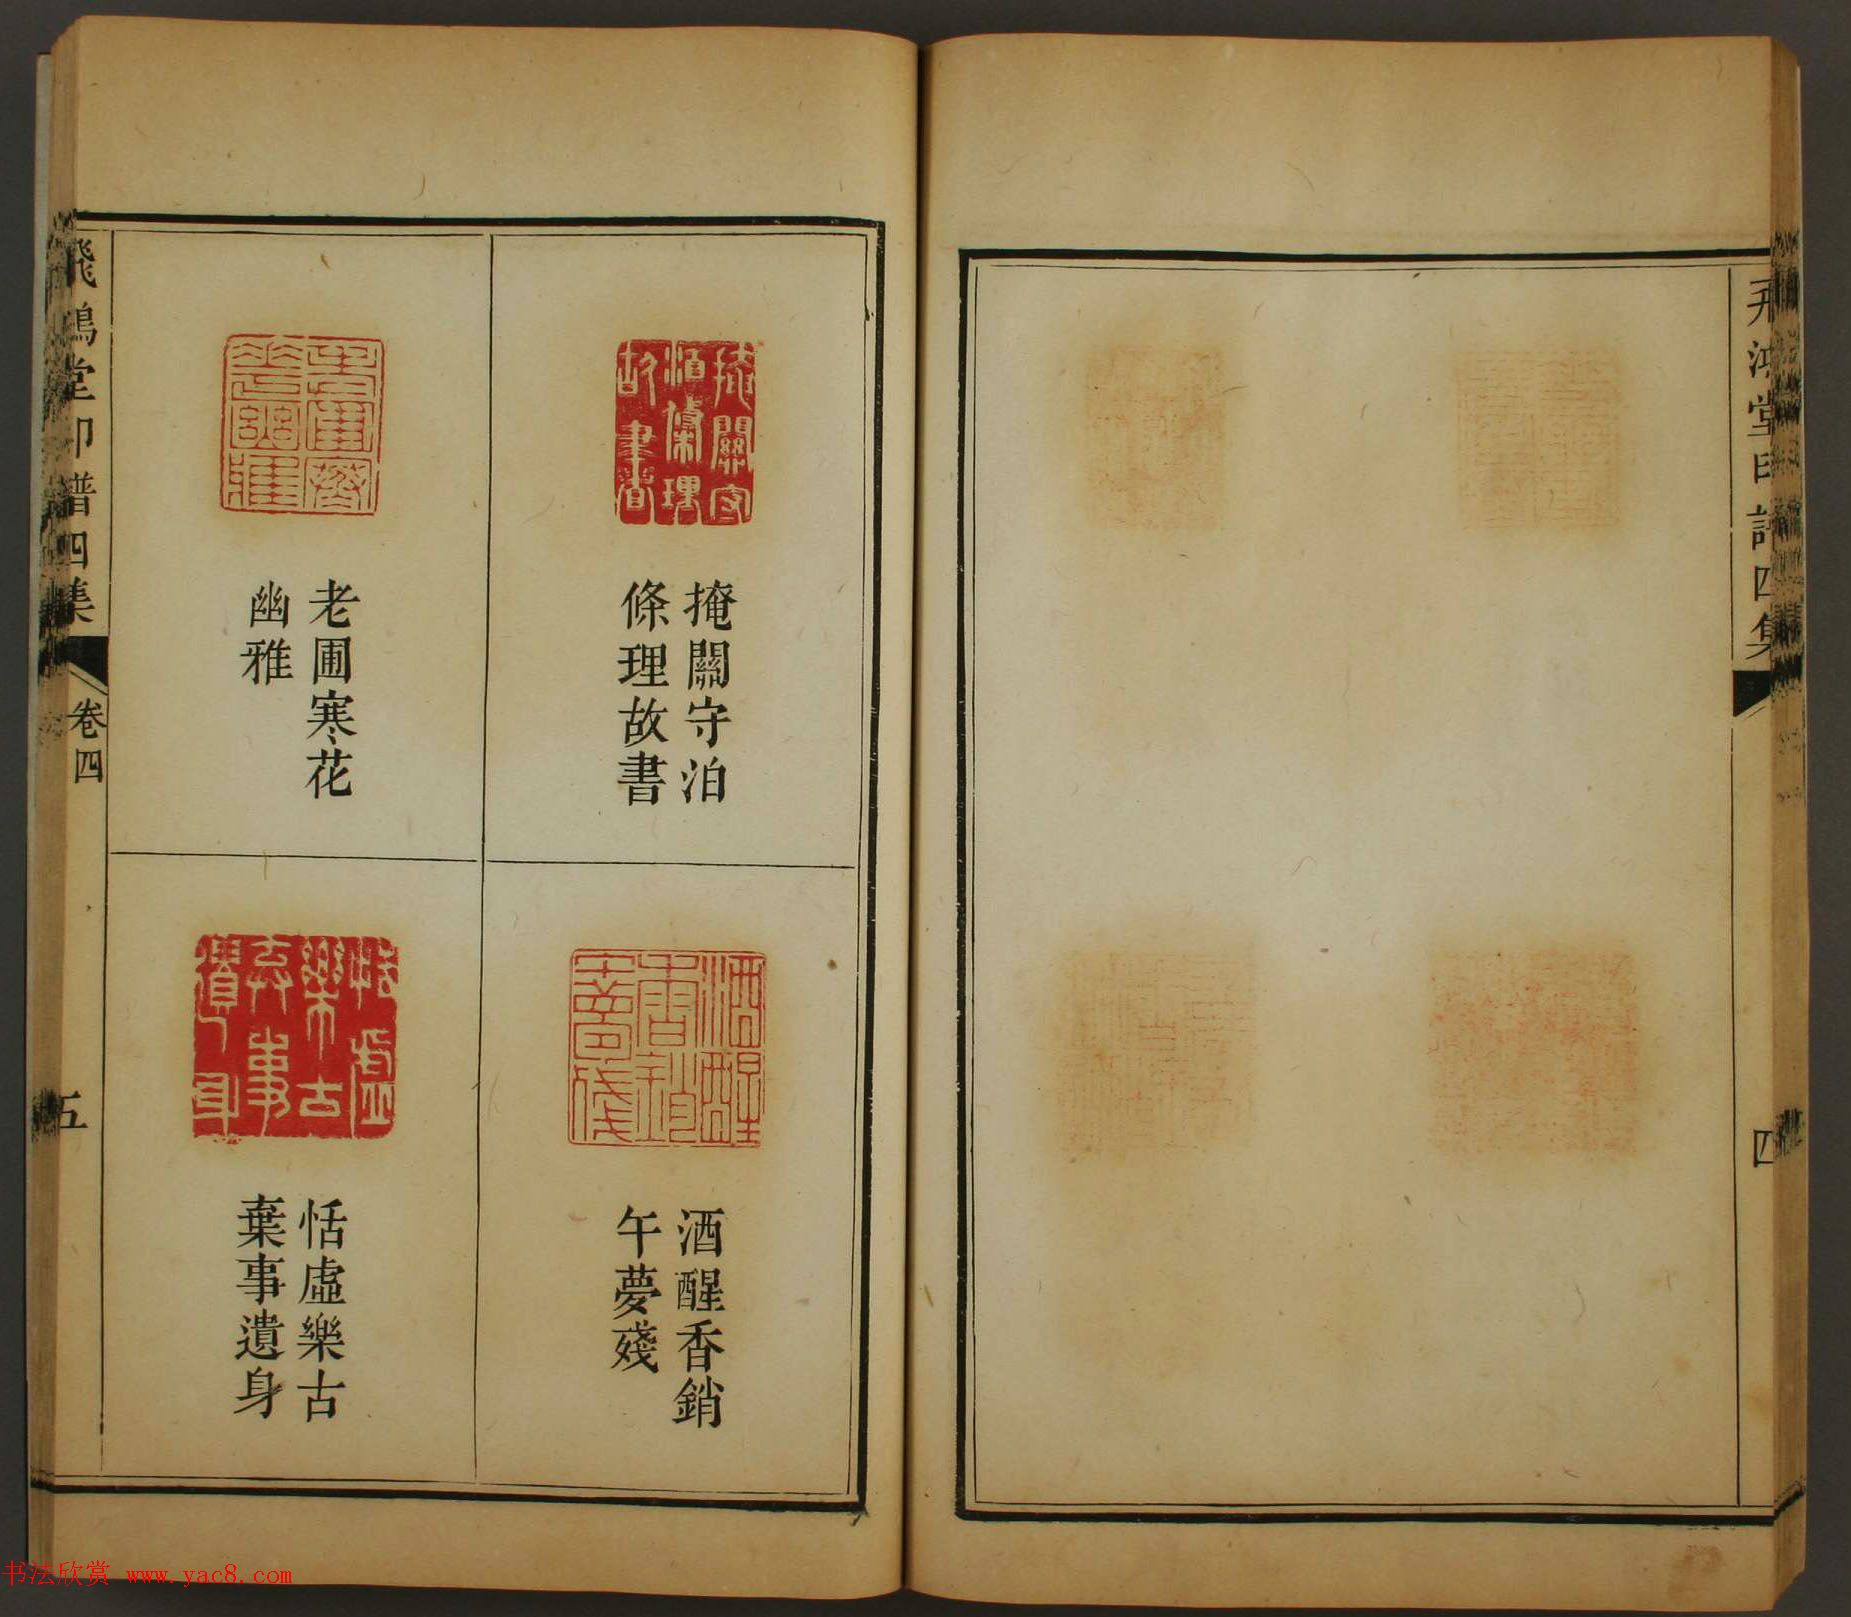 飛鴻堂印譜四集
四
掩關守泊
條理故書
老圃寒花
幽雅
酒醒香銷
午夢殘
恬虛樂古
棄事遺身
飛鴻堂印譜四集
卷四
五
书法欣赏 www.yac8.com